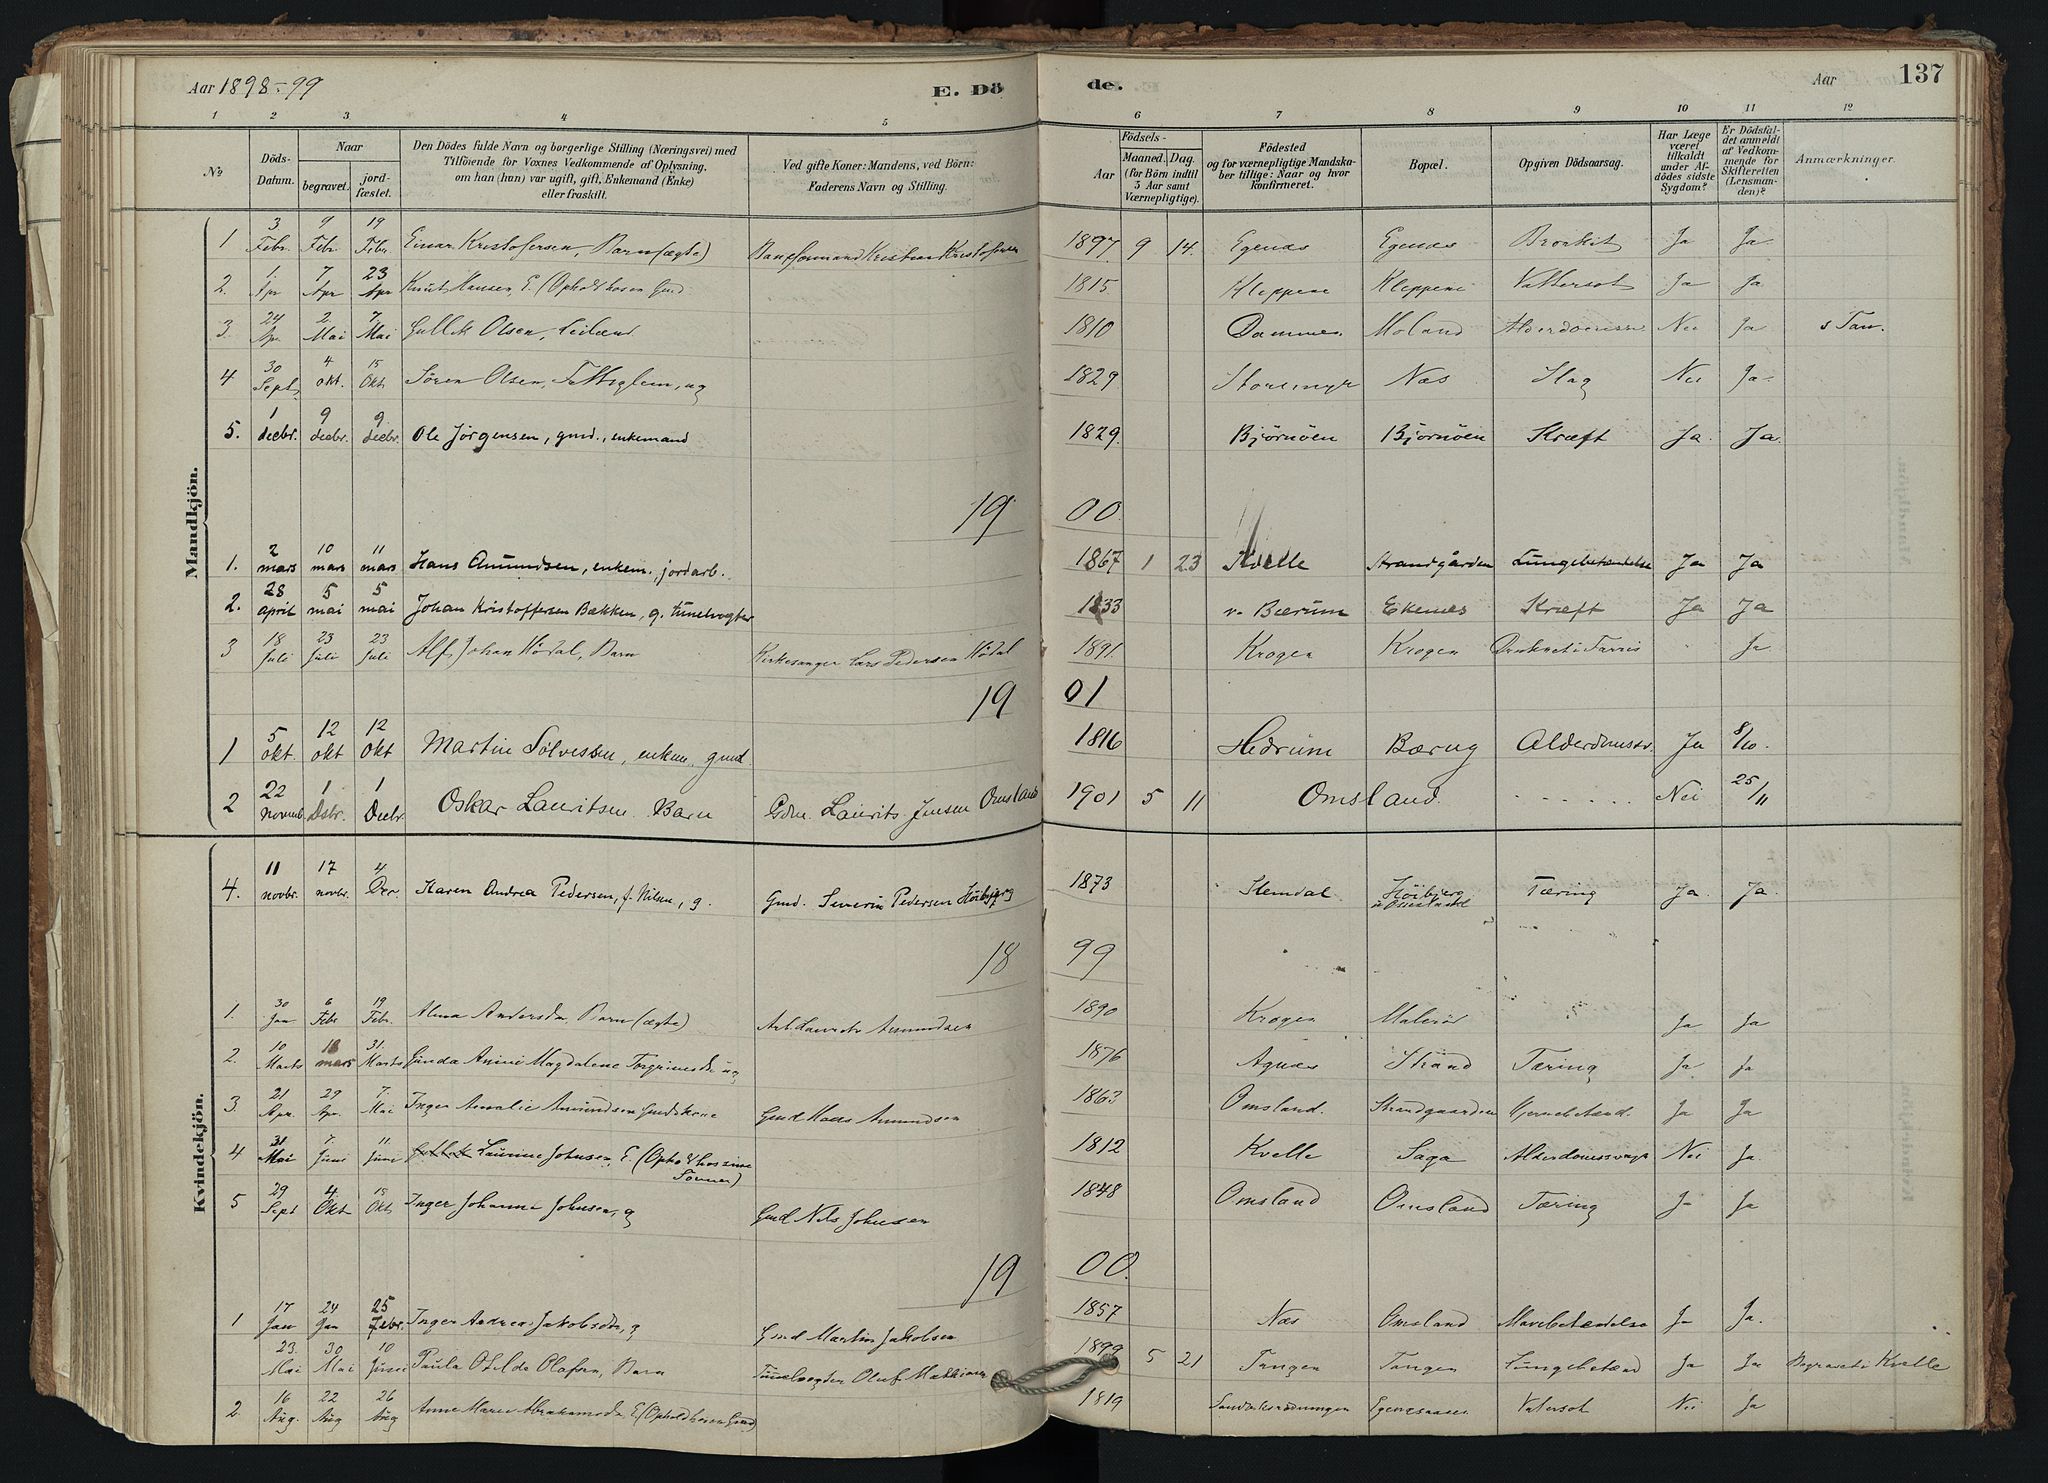 Aar 1898-99
E. Dö
de.
Aar
137
1 2 3 4 5 6 7 8 9 10 11 12
No
Döds-Datum.
Naar
begravet.
jord-fæstet.
Den Dödes fulde Navn og borgerlige Stilling (Næringsvei) med
Tilföiende for Voxnes Vedkommende af Oplysning,
om han (hun) var ugift, gift, Enkemand (Enke)
eller fraskilt.
Ved gifte Koner: Mandens, ved Börn:
Faderens Navn og Stilling.
Födsels-
Aar
Maaned. Dag.
(for Börn indtil
3 Aar samt
Værnepligtige).
Födested
og for værnepligtige Mandska-
ber tillige: Naar og hvor
konfirmeret.
Bopæl.
Opgiven Dödsaarsag.
Har Læge
været
tilkaldt
under Af-
dödes sidste
Sygdom?
Er Dödsfal-
det anmeldt
af Vedkom-
mende for
Skifteretten
(Lensman-
den)?
Anmærkninger.
Mandkjön.
1 3 Febr. 9 Febr. 19 Febr Einar Kristofersen, Barn (ægte) Kristian Kristofersen 1897 9 14 Egenæs Egenæs Bronkit Ja Ja
2. 1. Apr 7 Apr 23 Apr Knut Hansen, E. (Opholdshosen Gmd 1815 Kleppene Kleppene Vattersot Ja Ja
3. 24 Ap. 2. Mai 7. Mai Gullik Olsen, Leilænd 1810 Dammen Moland Nei Ja
4 30 Sept. 4 okt. 15 Okt Søren Olsen, Fattiglem, ug 1829 Storemyr Næs Slag Nei Ja
5. 1 decbr. 9 decbr. 9 decbr. Ole Jörgensen, gmd., enkemand 1829. Bjørnöen Bjørnöen Kræft Ja. Ja.
19 00.
1. 2 mars 10 mars 11 mars Hans Amundsen, enkem., jordarb. 1867 1 23 Kvelle Strandgården Lungebetændelse Ja Ja
2. 28 april 5 mai 5 mai Johan Kristoffersen Bækken, g. tunelvogter 1833 v. Bærum Ekenes Kræft Ja Ja
3 18 Juli 23 Juli 23 Juli Alf Johan Hödal, Barn Kirkesanger Lars Pedersen Hödal 1891. Krogen Krogen Druknet i Farris Ja
19 01
1 5 okt. 12 okt 12 okt Martin Sölvessen, enkem. gmd 1816 Hedrum Bærug Alderdomssv. Ja 8/10.
2 22 novmb. 1 Dsbr. 1 Decbr. Oskar Lauritsen. Barn Gdm. Laurits Jensen Omsland 1901 5 11 Omsland. Nei 25/11
Kvindekjön.
4. 11 novbr. 17 novbr. 4 Dec. Karen Andrea Pedersen, f. Nilsen, g. Gmd. Severin Pedersen Höibjerg 1873 Hemdal Höibjerg Tæring Ja. Ja.
18 99
1. 30 Jan 6 Febr 19 Febr. Alma Andersdr, Barn (ægte) Arb. Laurets Amundsen 1890 Krogen Ja Ja
2. 10 Marts 18 mars 31. Marts Gunda Anine Magdalene Torgrimsdr ug 1876 Agnæs Strand Tæring Ja Ja
3. 21 Apr. 29 Apr. 7. Mai Inger Amalie Amundsen Gmdskone Gmd Hans Amundsen 1863 Omsland. Strandgaarden Hjernebetænd. Ja Ja
4 31 Mai 7. Juni 11. Juni Laurine Johnsen, E. 1812 Kvelle Saga Alderdomssvagh Nei Ja.
5 29 Sept 4. Okt 15 Okt Inger Johanne Johnsen, g Gmd Nils Johnsen 1848 Omsland Omsland Tæring Ja Ja
19 00.
1 17 Jan 24 Jan 25 Febr. Inger Andrea Jakobsdr, g Gmd Martin Jakobsen 1857 Næs Omsland Mavebetændelse Ja Ja.
23. Mai 30 Mai 10 Juni Paula Otilde Olafsen, Barn Tunelvogter Oluf Mathisen 1899 5 21 Tangen Tangen Lungebetænd Ja Ja Begravet i Kvelle
2. 16 Aug. 22 Aug 26 Aug Anne Marie Abrahamsdr E (Opholdshosen Gmd) 1819 Vatersot Nei Ja